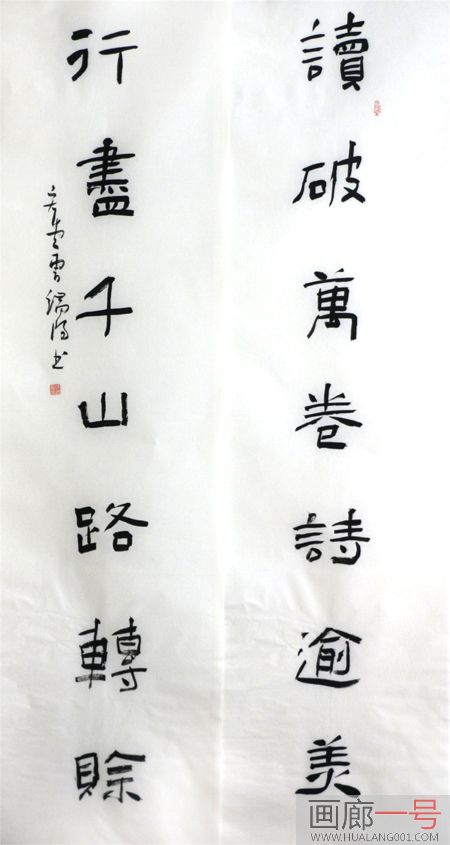 讀破萬卷詩逾美
行盡千山路轉賒
画廊一号
WWW.HUALANG001.COM